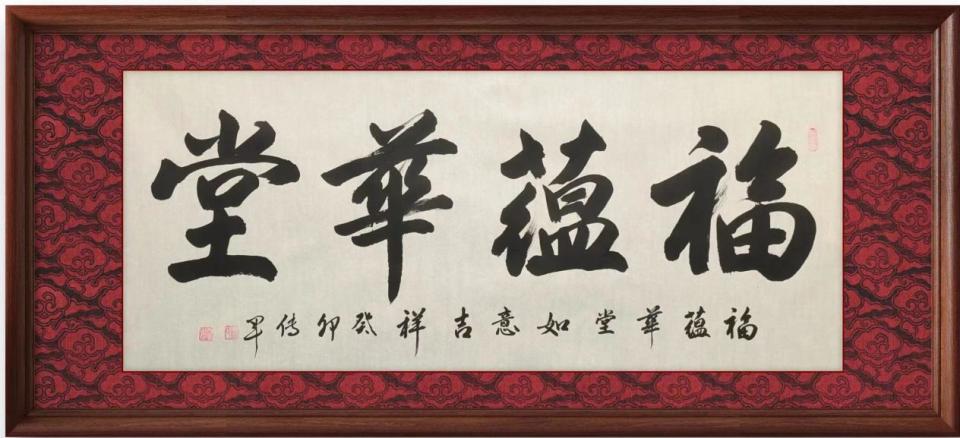 福蘊華堂
福蘊華堂如意吉祥癸卯傳軍